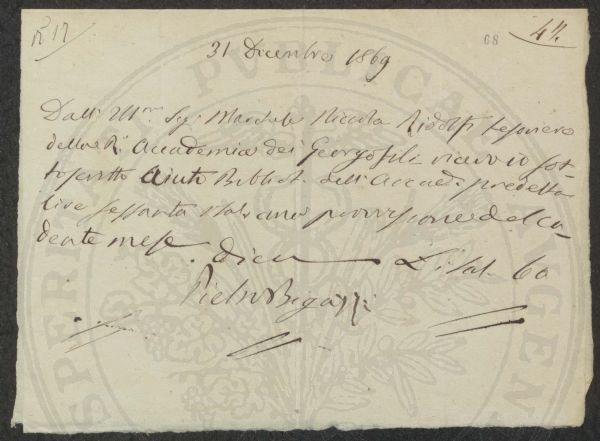 R 17
68
47.
31 Dicembre 1869
Dall' Ill.mo Sig. Marchese Niccola Ridolfi tesoriere
della R. Accademia dei Georgofili ricevo io sot-
toscritto Aiuto Bibliot. dell'Accad. predetta
lire sessanta italiane provvisione del ca-
dente mese dico L. ital. 60
Pietro Bigazzi
PUBLICAE